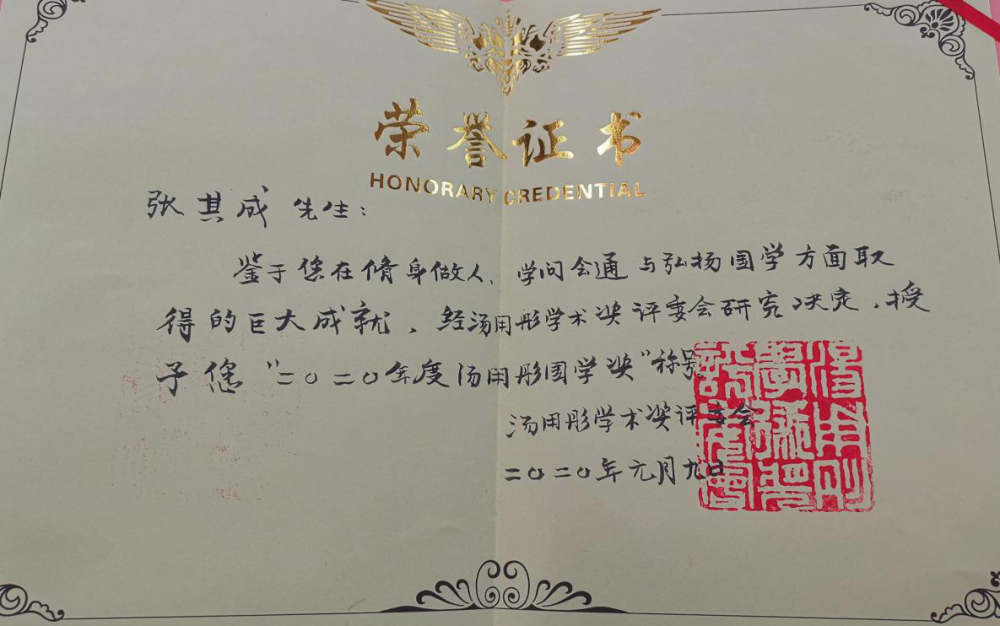 荣誉证书
HONORARY CREDENTIAL
张其成先生：
鉴于您在修身做人、学问会通与弘扬国学方面取
得的巨大成就，经汤用彤学术奖评委会研究决定，授
予您“二〇二〇年度汤用彤国学奖”称号
汤用彤学术奖评委会
二〇二〇年元月九日